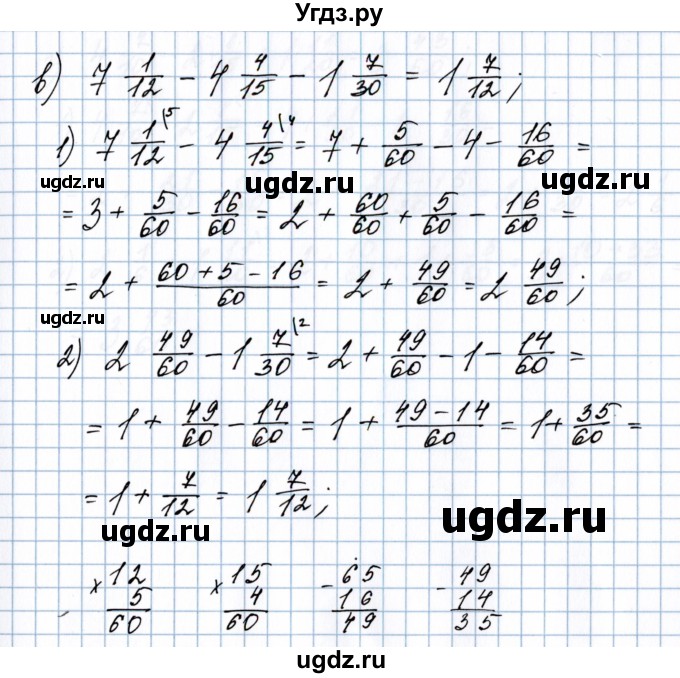 Угдз.ру
в) 7 1/12 - 4 4/15 - 1 7/30 = 1 7/12;
1) 7 1/12 \5 - 4 4/15 \4 = 7 + 5/60 - 4 - 16/60 =
ugdz.ru ugdz.ru ugdz.ru
= 3 + 5/60 - 16/60 = 2 + 60/60 + 5/60 - 16/60 =
= 2 + (60 + 5 - 16)/60 = 2 + 49/60 = 2 49/60;
ugdz.ru ugdz.ru
2) 2 49/60 - 1 7/30 \2 = 2 + 49/60 - 1 - 14/60 =
= 1 + 49/60 - 14/60 = 1 + (49 - 14)/60 = 1 + 35/60 =
= 1 + 7/12 = 1 7/12;
ugdz.ru ugdz.ru
× 12 × 15 - 65 - 49
5 4 16 14
60 60 49 35
ugdz.ru